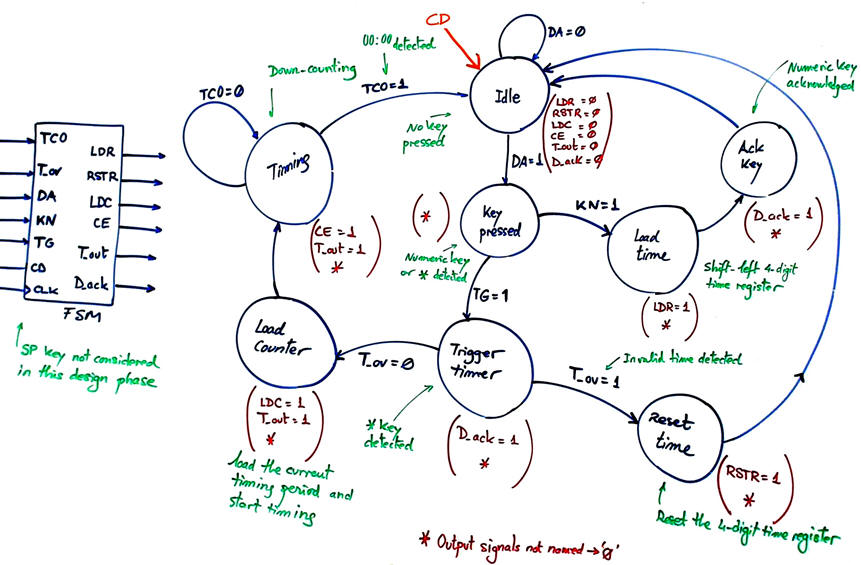 CD
DA=0
00:00 detected
Down-counting
TC0=1
TC0=0
Idle
LDR = 0
RSTR = 0
LDC = 0
CE = 0
T_out = 0
D_ack = 0
No key
pressed
DA=1
Numeric key
acknowledged
Ack
key
(D_ack = 1
*)
TCO
T_ov
DA
KN
TG
CD
CLK
LDR
RSTR
LDC
CE
T_out
D_ack
FSM
SP key not considered
in this design phase
Timing
(CE = 1
T_out = 1
*)
(*)
Key
pressed
Numeric key
or * detected
KN=1
Load
time
Shift-left 4-digit
time register
(LDR=1
*)
TG=1
Load
Counter
T_ov=0
Trigger
timer
Invalid time detected
T_ov=1
(LDC = 1
T_out = 1
*)
load the current
timing period and
start timing
* key
detected
(D_ack = 1
*)
Reset
time
(RSTR=1
*)
Reset the 4-digit time register
* Output signals not named → '0'